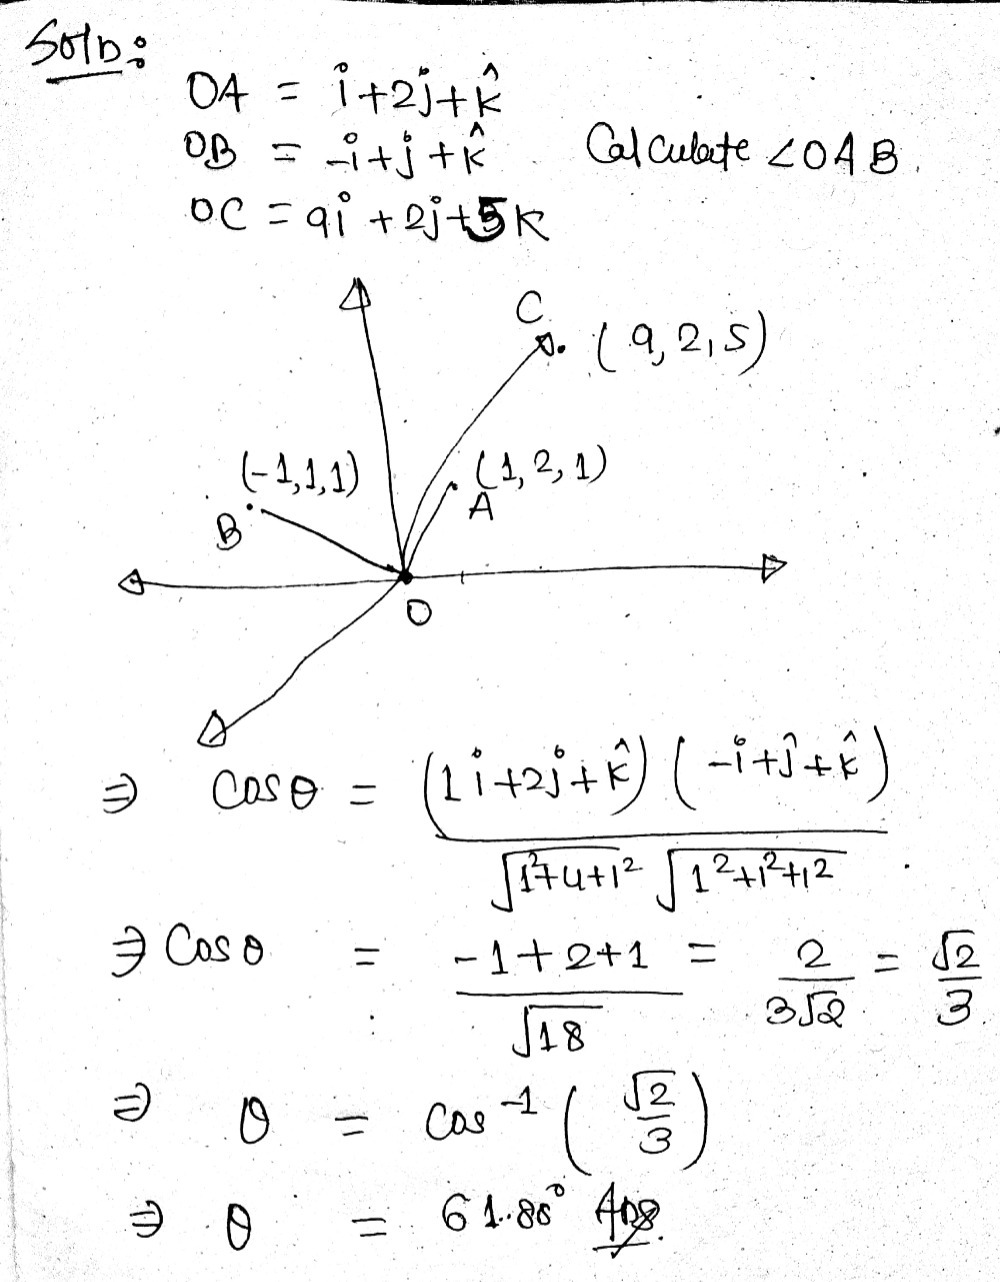 Soln:
OA = i+2j+k̂
OB = -i+j+k̂ Calculate ∠OAB.
OC = 9i + 2j+5k
C
(9,2,5)
(-1,1,1)
(1,2,1)
B
A
O
⇒ cosθ = (1i+2j+k̂) (-i+ĵ+k̂) / √1²+4+1² √1²+1²+1²
⇒ Cosθ = -1+2+1 / √18 = 2 / 3√2 = √2 / 3
⇒ θ = cos⁻¹ (√2 / 3)
⇒ θ = 61.88° Ans.